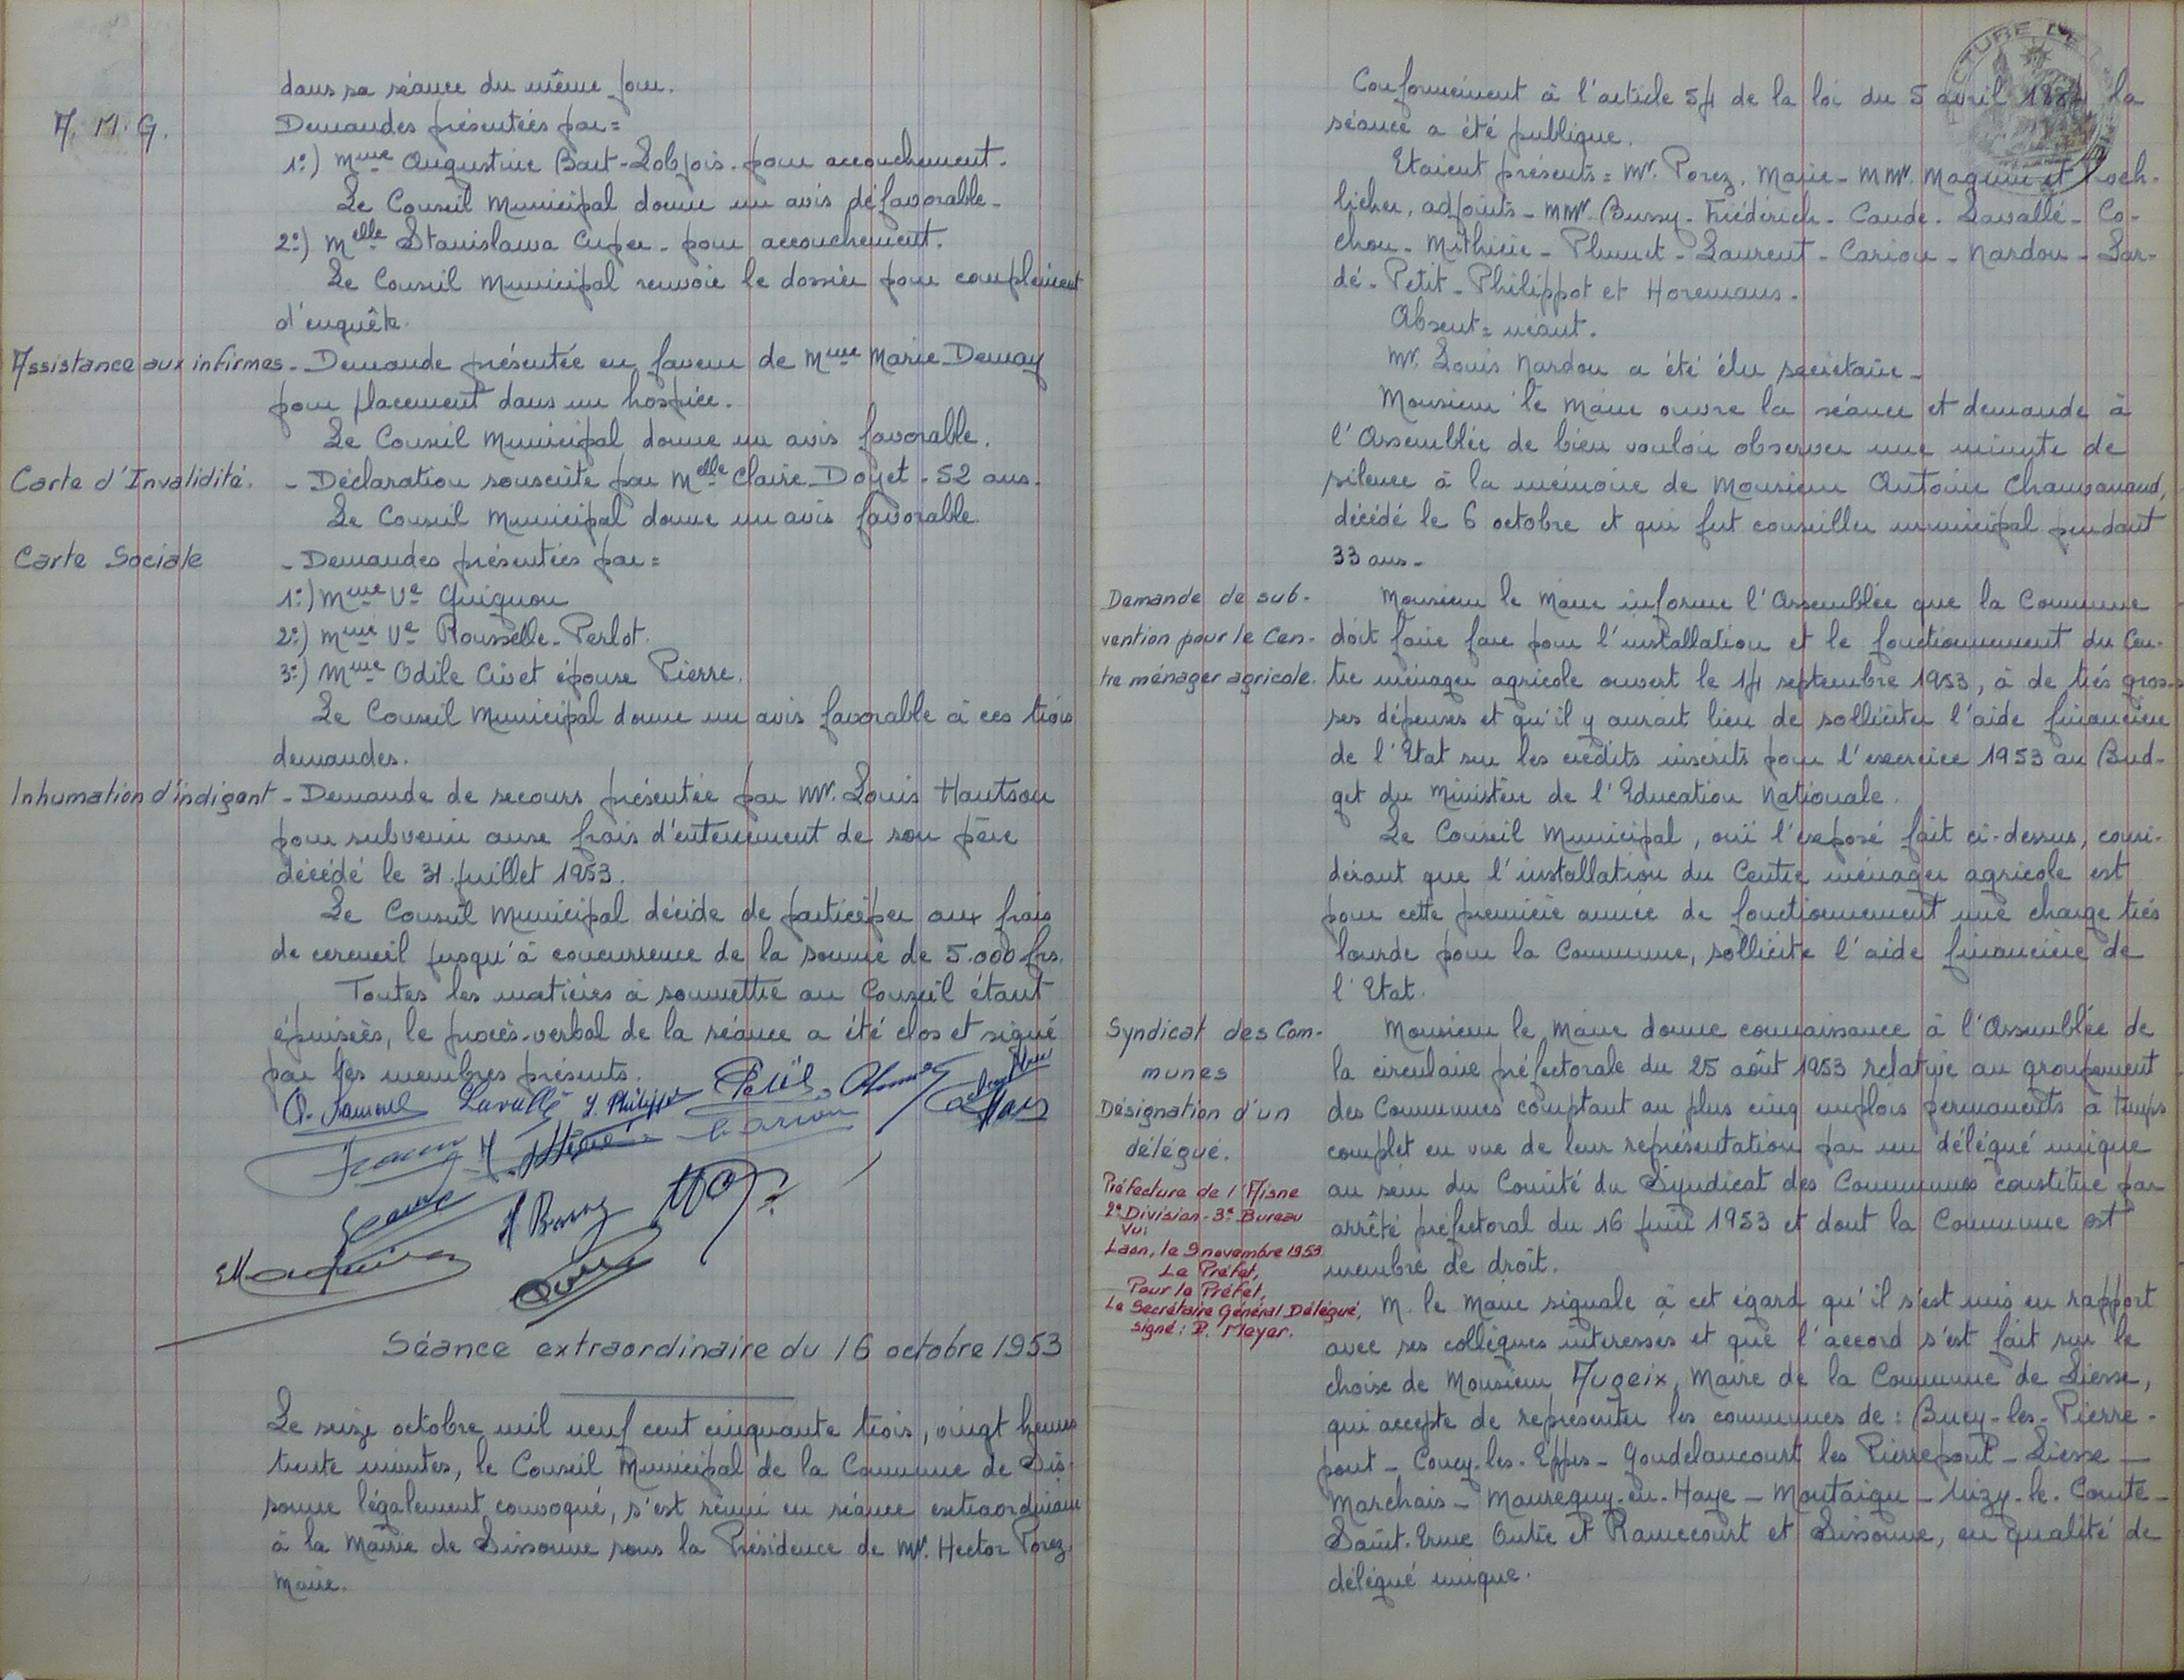 dans sa séance du même jour.
A. M. G.
Demandes présentées par =
1°) Mme Augustine Bait-Lobjois - pour accouchement.
Le Conseil Municipal donne un avis défavorable -
2°) Melle Stanislawa Cuper - pour accouchement.
Le Conseil Municipal renvoie le dossier pour complément
d'enquête.
Assistance aux infirmes - Demande présentée en faveur de Mme Marie Demay
pour placement dans un hospice.
Le Conseil Municipal donne un avis favorable.
Carte d'Invalidité. - Déclaration souscrite par Melle Claire Doyet - 52 ans.
Le Conseil Municipal donne un avis favorable.
Carte Sociale - Demandes présentées par =
1°) Mme Ve Guignon
2°) Mme Ve Rousselle-Perlot.
3°) Mme Odile Civet épouse Pierre.
Le Conseil Municipal donne un avis favorable à ces trois
demandes.
Inhumation d'indigent - Demande de secours présentée par Mr. Louis Hautson
pour subvenir aux frais d'enterrement de son père
décédé le 31 juillet 1953.
Le Conseil Municipal décide de participer aux frais
de cercueil jusqu'à concurrence de la somme de 5.000 frs.
Toutes les matières à soumettre au Conseil étant
épuisées, le procès-verbal de la séance a été clos et signé
par les membres présents.
Lavallé Y. Philippot Petit
Séance extraordinaire du 16 octobre 1953
Le seize octobre mil neuf cent cinquante trois, vingt heures
trente minutes, le Conseil Municipal de la Commune de Sis-
sonne légalement convoqué, s'est réuni en séance extraordinaire
à la Mairie de Sissonne sous la Présidence de Mr. Hector Porez,
Maire.
Conformément à l'article 54 de la loi du 5 avril 1884 la
séance a été publique.
Etaient présents = Mr. Porez, Maire - MMr. Maguin et Roch-
licher, adjoints - MMr. Bussy - Frédérich - Caude - Lavallé - Co-
chon - Mithière - Plumet - Laurent - Cariou - Nardon - Lar-
dé - Petit - Philippot et Horemans.
Absent = néant.
Mr. Louis Nardon a été élu secrétaire -
Monsieur le Maire ouvre la séance et demande à
l'Assemblée de bien vouloir observer une minute de
silence à la mémoire de Monsieur Antoine Chauvanaud,
décédé le 6 octobre et qui fut conseiller municipal pendant
33 ans -
Demande de sub-
vention pour le Cen-
tre ménager agricole.
Monsieur le Maire informe l'Assemblée que la Commune
doit faire face pour l'installation et le fonctionnement du Cen-
tre ménager agricole ouvert le 14 septembre 1953, à de très gros-
ses dépenses et qu'il y aurait lieu de solliciter l'aide financière
de l'Etat sur les crédits inscrits pour l'exercice 1953 au Bud-
get du Ministère de l'Education Nationale.
Le Conseil Municipal, ouï l'exposé fait ci-dessus, consi-
dérant que l'installation du Centre ménager agricole est
pour cette première année de fonctionnement une charge très
lourde pour la Commune, sollicite l'aide financière de
l'Etat.
Syndicat des Com-
munes
Désignation d'un
délégué.
Préfecture de l'Aisne
2e Division - 3e Bureau
Vu:
Laon, le 9 novembre 1953
Le Préfet,
Pour le Préfet,
Le Secrétaire Général Délégué,
signé: P. Meyer.
Monsieur le Maire donne connaissance à l'Assemblée de
la circulaire préfectorale du 25 août 1953 relative au groupement
des Communes comptant au plus cinq emplois permanents à temps
complet en vue de leur représentation par un délégué unique
au sein du Comité du Syndicat des Communes constitué par
arrêté préfectoral du 16 juin 1953 et dont la Commune est
membre de droit.
M. le Maire signale à cet égard qu'il s'est mis en rapport
avec ses collègues intéressés et que l'accord s'est fait sur le
choix de Monsieur Augeix, Maire de la Commune de Liesse,
qui accepte de représenter les communes de : Bucy-les-Pierre-
pont - Coucy-les-Eppes - Goudelancourt les Pierrepont - Liesse -
Marchais - Mauregny-en-Haye - Montaigu - Nizy-le-Comte -
Saint-Erme Outre et Ramecourt et Sissonne, en qualité de
délégué unique.